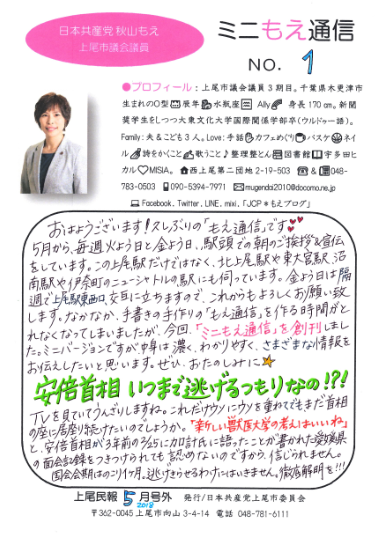 日本共産党 秋山もえ
上尾市議会議員
ミニもえ通信
NO. 1
●プロフィール：上尾市議会議員3期目。千葉県木更津市
生まれのO型 辰年 水瓶座 Ally 身長170㎝。新聞
奨学生をしつつ大東文化大学国際関係学部卒(ウルドゥー語)。
Family:夫&こども3人。Love:手話 カフェめぐり バスケ ネイ
ル 詩をかくこと 歌うこと♪整理整とん 図書館 宇多田ヒ
カル♡MISIA。 西上尾第二団地2-19-503 ☎&048-
783-0503 090-5394-7971 ✉mugendai2010@docomo.ne.jp
Facebook、Twitter、LINE、mixi、「JCP*もえブログ」
おはようございます！久しぶりの「もえ通信」です
5月から、毎週火よう日と金よう日、駅頭での朝のご挨拶&宣伝
をしています。この上尾駅だけではなく、北上尾駅や東大宮駅、沼
南駅や伊奈町のニューシャトルの駅にも伺っています。金よう日は隔
週で上尾駅東西口、交互に立ちますので、これからもよろしくお願い致
します。なかなか、手書きの手作りの「もえ通信」を作る時間がと
れなくなってしまいましたが、今回、「ミニもえ通信」を創刊しまし
た。ミニバージョンですが中身は濃く、わかりやすく、さまざまな情報を
お伝えしたいと思います。ぜひ、おたのしみに★
安倍首相 いつまで逃げるつもりなの!?!
TVを見ていてうんざりしますね。これだけウソにウソを重ねてでもまだ首相
の座に居座り続けたいのでしょうか。「新しい獣医大学の考えはいいね」
と、安倍首相が3年前の2/25に加計氏に語ったことが書かれた愛媛県
の面会記録をつきつけられても認めないのですから、信じられません。
国会会期はのこり1ヶ月。逃げきらせるわけにはいきません。徹底解明を!!!
上尾民報 5月号外 発行/日本共産党上尾市委員会
2018
〒362-0045 上尾市向山3-4-14 電話 048-781-6111